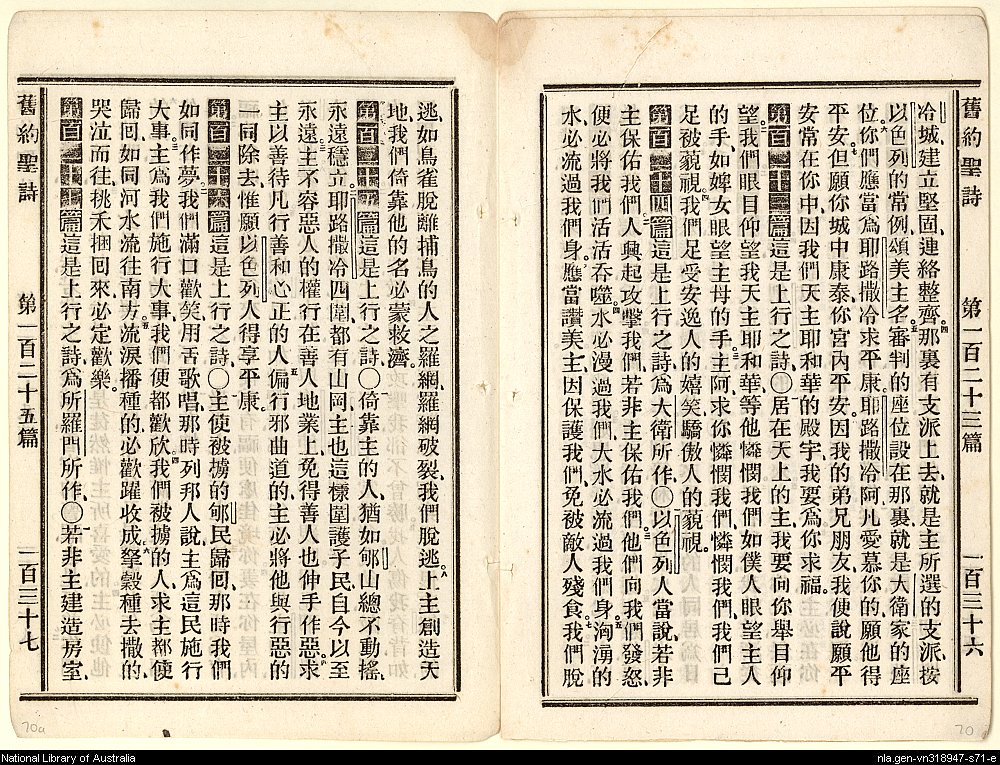 舊約聖詩　第一百二十三篇　一百三十六
冷城、建立堅固、連絡整齊、那裏有支派上去、就是主所選的支派、按
以色列的常例、頌美主名、審判的座位設在那裏、就是大衛家的座
位、你們應當爲耶路撒冷求平康、耶路撒冷阿、凡愛慕你的、願他得
平安、但願你城中康泰、你宮內平安、因我的弟兄朋友、我便說願平
安常在你中、因我們天主耶和華的殿宇、我要爲你求福。
第一百二十三篇 這是上行之詩、〇居在天上的主、我要向你舉目仰
望、我們眼目仰望我天主耶和華、等他憐憫我們、如僕人眼望主人
的手、如婢女眼望主母的手、主阿、求你憐憫我們、憐憫我們、我們已
足被藐視、我們足受安逸人的嬉笑、驕傲人的藐視。
第一百二十四篇 這是上行之詩、爲大衛所作、〇以色列人當說、若非
主保佑我們、人興起攻擊我們、若非主保佑我們、他們向我們發怒、
便必將我們活活吞噬、水必漫過我們、大水必流過我們身、洶湧的
水、必流過我們身、應當讚美主、因保護我們、免被敵人殘食、我們脫
逃、如鳥雀脫離捕鳥的人之羅網、羅網破裂、我們脫逃、上主創造天
地、我們倚靠他的名、必蒙救濟。
第一百二十五篇 這是上行之詩、〇倚靠主的人、猶如郇山、總不動搖、
永遠穩立、耶路撒冷四圍都有山岡、主也這樣圍護子民、自今以至
永遠、主不容惡人的權行在善人地業上、免得善人也伸手作惡、求
主以善待凡行善和心正的人、偏行邪曲道的、主必將他與行惡的
一同除去、惟願以色列人得享平康。
第一百二十六篇 這是上行之詩、〇主使被擄的郇民歸回、那時我們
如同作夢、我們滿口歡笑、用舌歌唱、那時列邦人說、主爲這民施行
大事、主爲我們施行大事、我們便都歡欣、我們被擄的人、求主都使
歸回、如同河水流往南方、流淚播種的、必歡躍收成、拏穀種去撒的、
哭泣而往、挑禾捆回來、必定歡樂。
第一百二十七篇 這是上行之詩、爲所羅門所作、〇若非主建造房室、
舊約聖詩　第一百二十五篇　一百三十七
70a
70
National Library of Australia
nla.gen-vn318947-s71-e